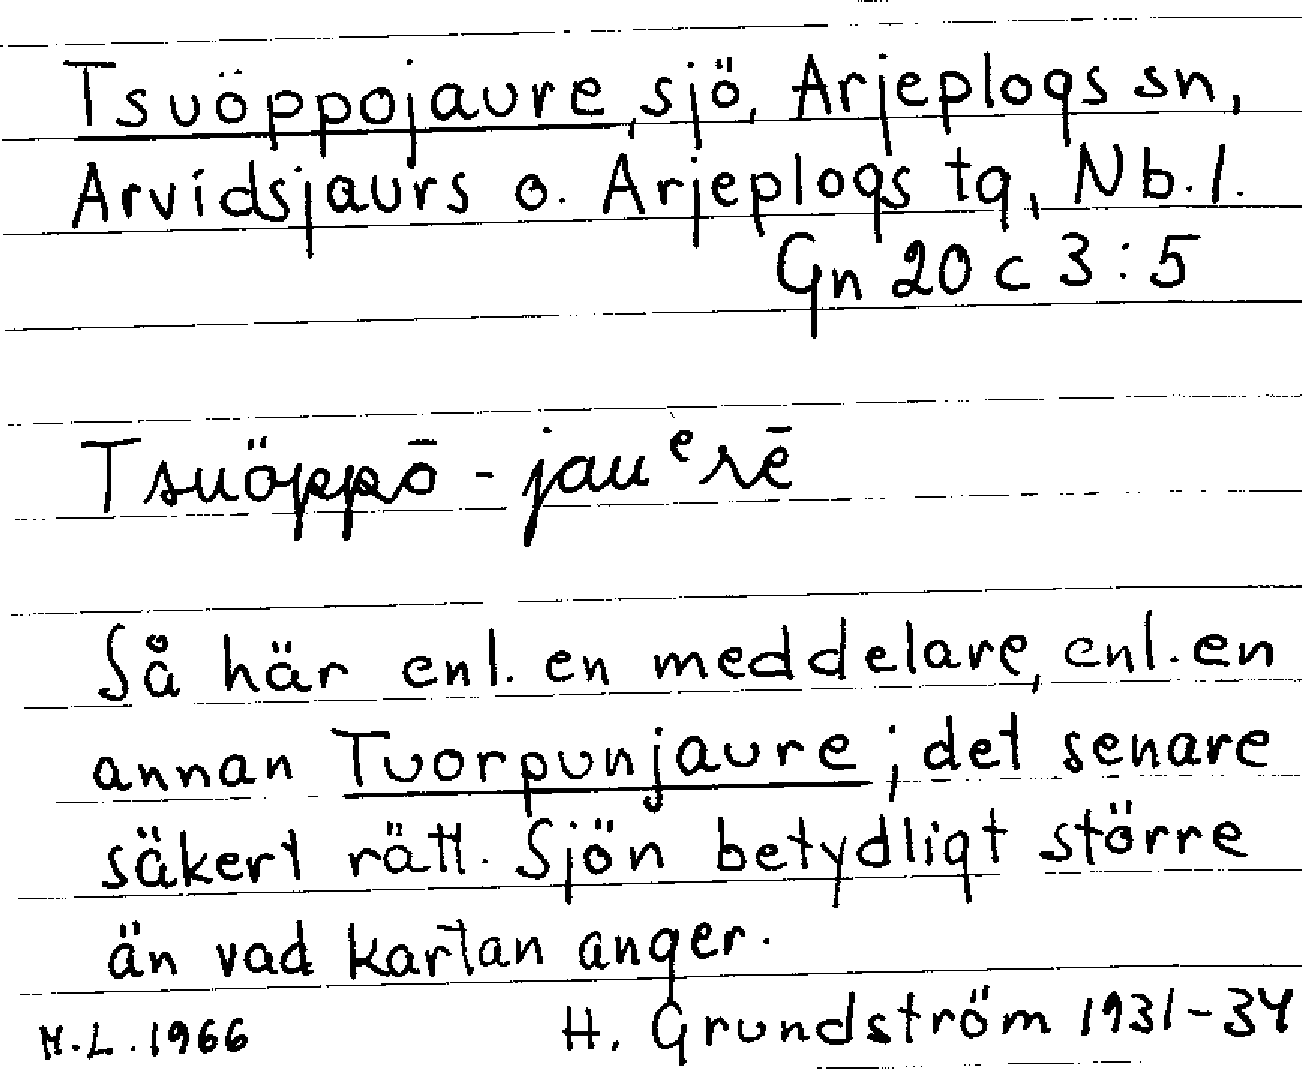 Tsuöppojaure, sjö, Arjeplogs sn,
Arvidsjaurs o. Arjeplogs tg, Nb.l.
Gn 20 c 3:5
Tsuöppō - jauᵉrē
Så här enl. en meddelare, enl. en
annan Tuorpunjaure; det senare
säkert rätt. Sjön betydligt större
än vad kartan anger.
H.L. 1966 H. Grundström 1931-34